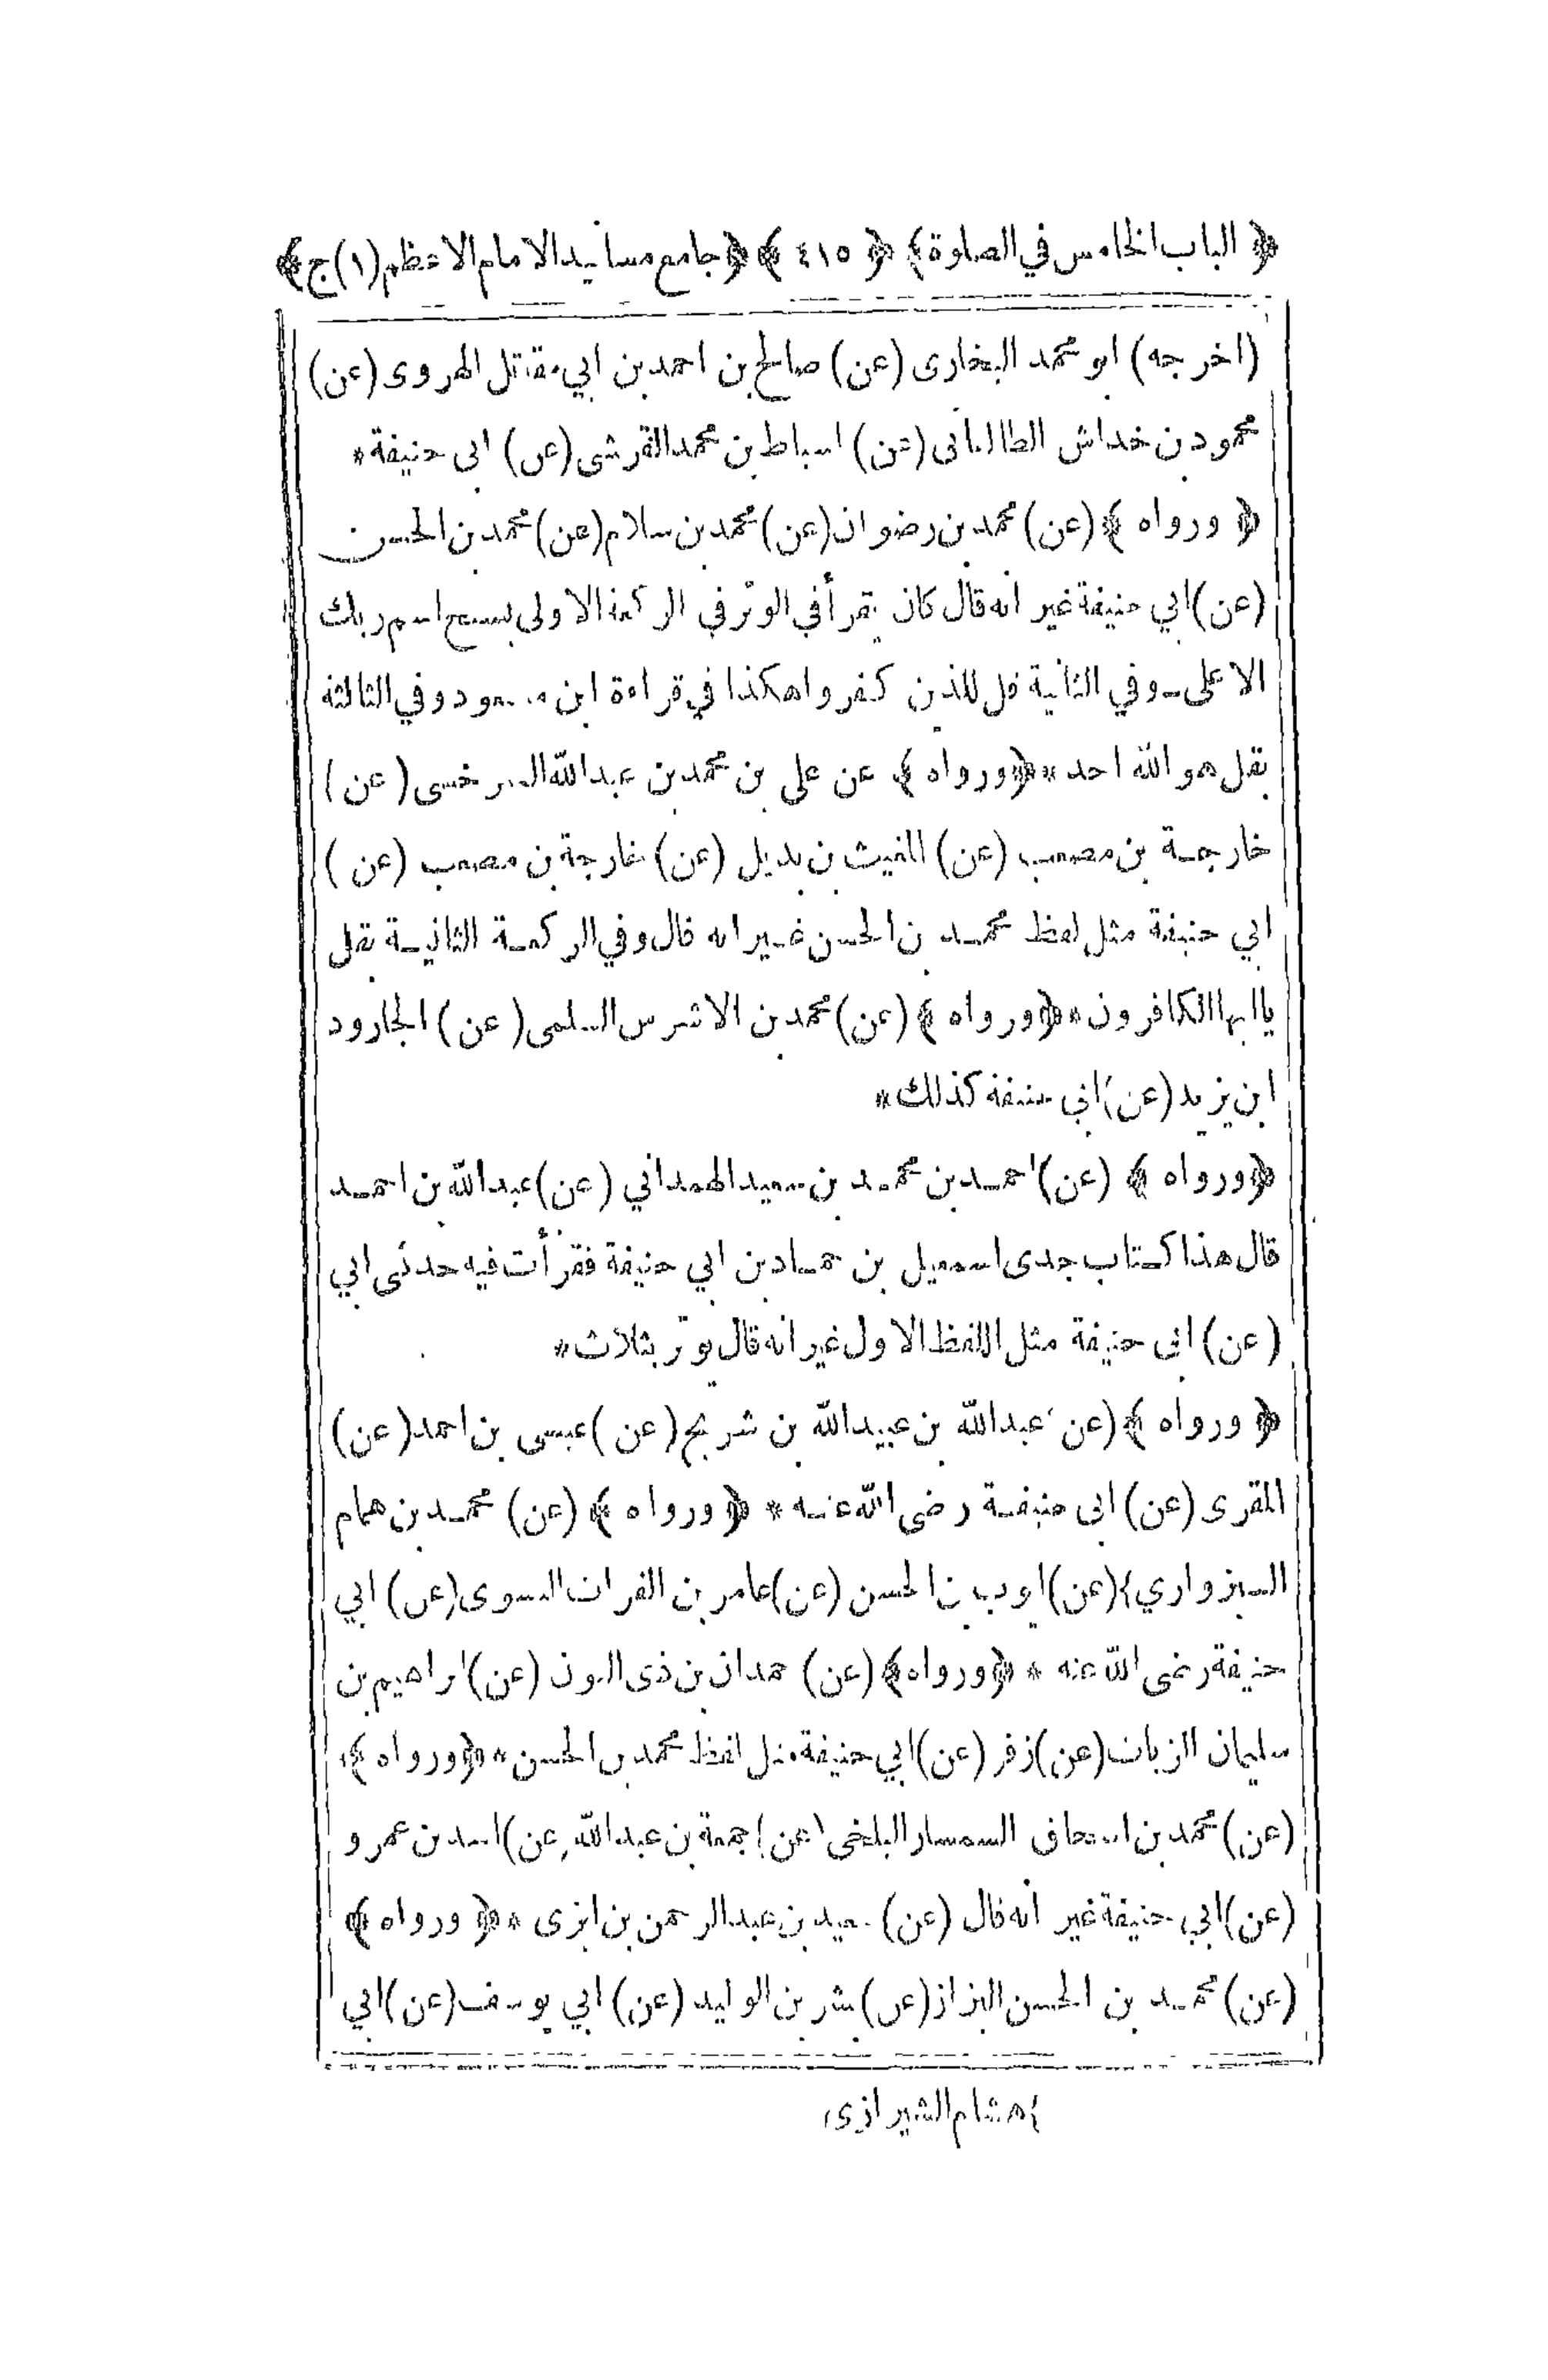 ﴿ الباب الخامس في الصلوة ﴾ ﴿ ٤١٥ ﴾ ﴿ جامع مسانيد الامام الاعظم (١) ج ﴾
(اخرجه) ابو محمد البخارى (عن) صالح بن احمد بن ابي مقاتل الهروى (عن)
محمود بن خداش الطالقانى (عن) اسباط بن محمد القرشى (عن) ابى حنيفة *
﴿ ورواه ﴾ (عن) محمد بن رضوان (عن) محمد بن سلام (عن) محمد بن الحسن
(عن) ابي حنيفة غير انه قال كان يقرأ في الوتر في الركعة الاولى بسبح اسم ربك
الاعلى ـ وفي الثانية قل للذين كفروا هكذا في قراءة ابن مسعود وفي الثالثة
بقل هو الله احد * ﴿ ورواه ﴾ عن على بن محمد بن عبدالله السرخسى (عن)
خارجة بن مصعب (عن) المغيث بن بديل (عن) خارجة بن مصعب (عن)
ابي حنيفة مثل لفظ محمد بن الحسن غير انه قال وفي الركعة الثانية بقل
ياايها الكافرون * ﴿ ورواه ﴾ (عن) محمد بن الاشرس السلمى (عن) الجارود
ابن يزيد (عن) ابي حنيفة كذلك *
﴿ ورواه ﴾ (عن) احمد بن محمد بن سعيد الهمداني (عن) عبدالله بن احمد
قال هذا كتاب جدى اسمعيل بن حماد بن ابي حنيفة فقرأت فيه حدثى ابي
(عن) ابى حنيفة مثل اللفظ الاول غير انه قال يوتر بثلاث *
﴿ ورواه ﴾ (عن) عبدالله بن عبيدالله بن شريح (عن) عيسى بن احمد (عن)
المقرى (عن) ابى حنيفة رضى الله عنه * ﴿ ورواه ﴾ (عن) محمد بن همام
السبزواري } (عن) ايوب بن الحسن (عن) عامر بن الفرات النسوى (عن) ابي
حنيفة رضى الله عنه * ﴿ ورواه ﴾ (عن) حمدان بن ذى النون (عن) ابراهيم بن
سليمان الزيات (عن) زفر (عن) ابي حنيفة مثل لفظ محمد بن الحسن * ﴿ ورواه ﴾
(عن) محمد بن اسحاق السمسار البلخى (عن) جمعة بن عبدالله (عن) اسد بن عمرو
(عن) ابي حنيفة غير انه قال (عن) سعيد بن عبدالرحمن بن ابزى * ﴿ ورواه ﴾
(عن) محمد بن الحسن البزاز (عن) بشر بن الوليد (عن) ابي يوسف (عن) ابي
} هشام الشيرازى